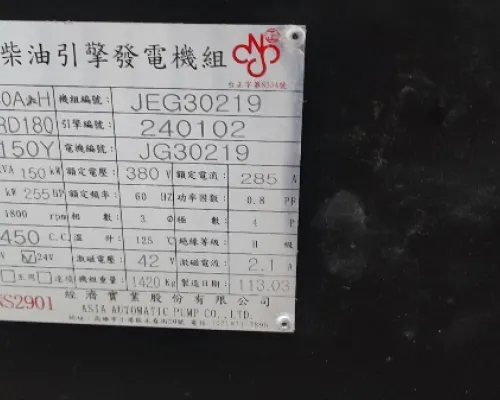 柴油引擎發電機組
正
台正字第8334號
機組編號: JEG30219
RD180 引擎編號: 240102
150Y 電機編號: JG30219
VA 150 kW 額定電壓: 380 V 額定電流: 285 A
kW 255 HP 額定頻率: 60 HZ 功率因數: 0.8 PF
1800 rpm 相數: 3 Φ 極數: 4 P
450 C.C. 溫升: 125 ℃ 絕緣等級: H 級
V ☑24V 激磁電壓: 42 V 激磁電流: 2.1 A
主用 連續 機組重量: 1420 Kg 製造日期: 113.03
NS2901 經濟實業股份有限公司
ASIA AUTOMATIC PUMP CO.,LTD.